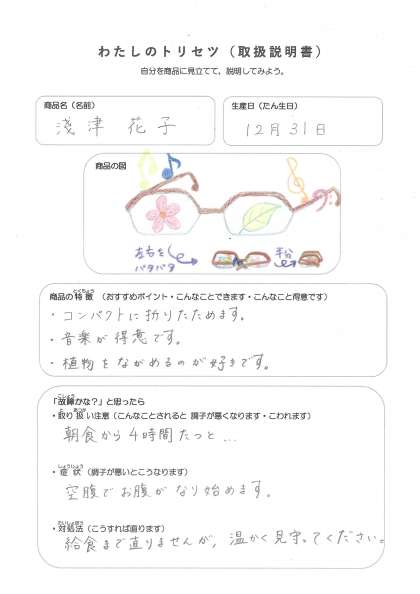 わたしのトリセツ（取扱説明書）
自分を商品に見立てて、説明してみよう。
商品名（名前）
淺津 花子
生産日（たん生日）
12月31日
商品の図
左右を
パタパタ
半分
商品の特徴（おすすめポイント・こんなことできます・こんなこと得意です）
とくちょう
・コンパクトに折りたためます。
・音楽が得意です。
・植物をながめるのが好きです。
「故障かな？」と思ったら
こしょう
・取り扱い注意（こんなことされると 調子が悪くなります・こわれます）
と あつか
朝食から4時間たつと…
・症状（調子が悪いとこうなります）
しょうじょう
空腹でお腹がなり始めます。
・対処法（こうすれば直ります）
たいしょほう
給食まで直りませんが、温かく見守ってください。